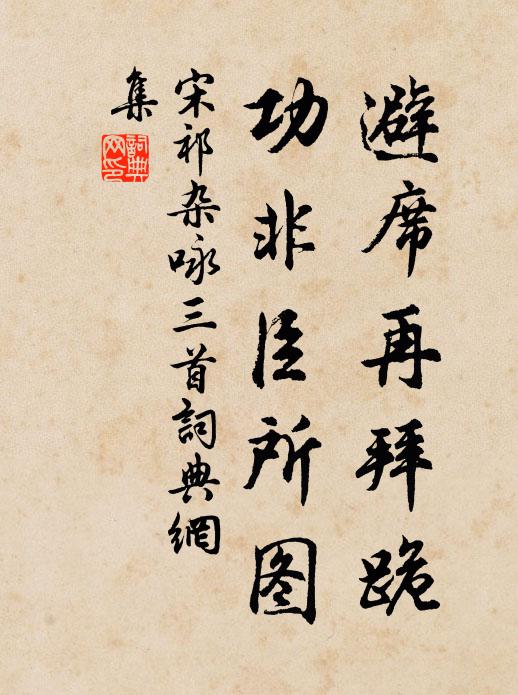 避席再拜跪
功非臣所图
宋祁杂咏三首詞典網
集
詞典
网印